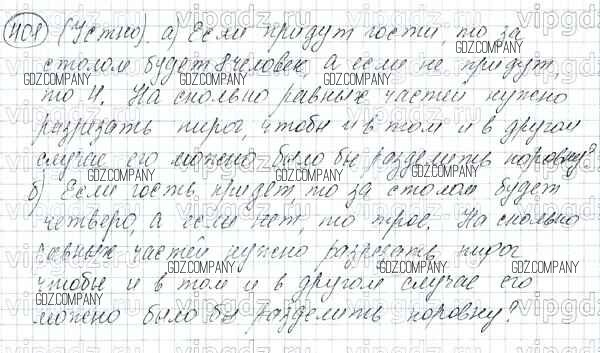 408 (Устно). а) Если придут гости, то за
столом будет 8 человек, а если не придут,
то 4. На сколько равных частей нужно
разрезать пирог, чтобы и в том и в другом
случае его можно было бы разделить поровну?
б) Если гость придет, то за столом будет
четверо, а если нет, то трое. На сколько
равных частей нужно разрезать пирог
чтобы и в том и в другом случае его
можно было бы разделить поровну?